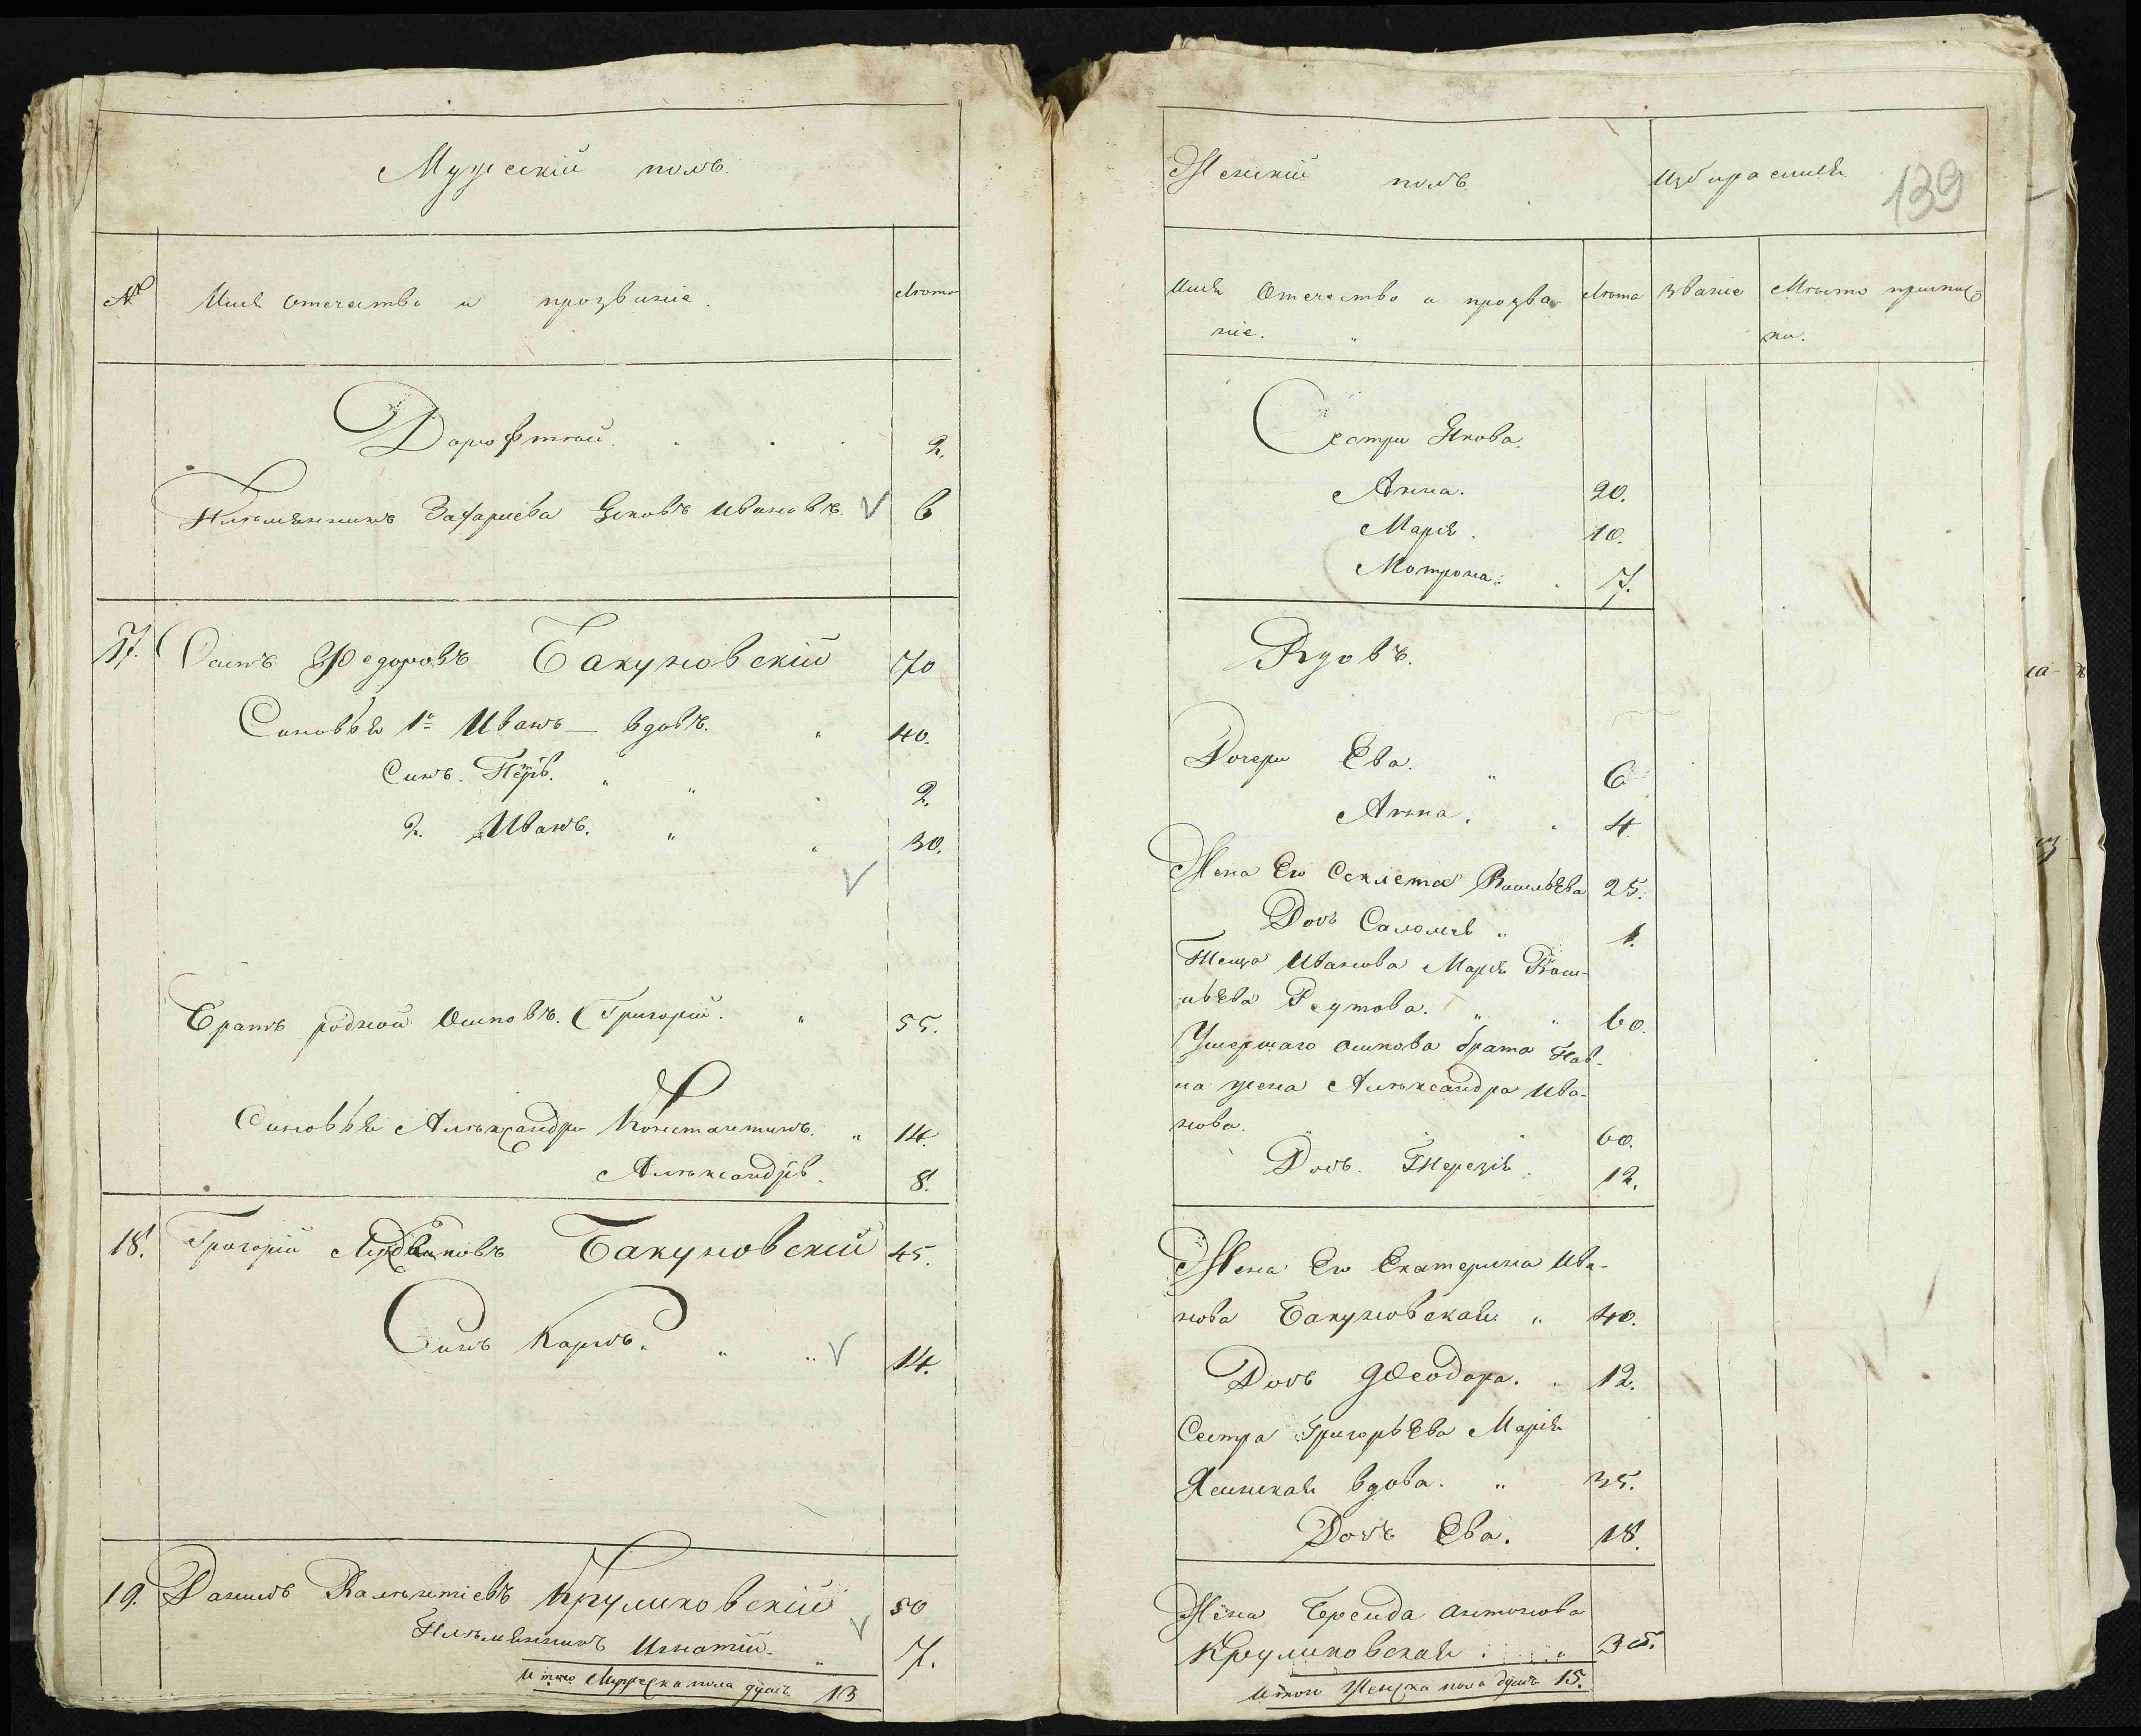 Мужескій полъ.
№ Имя Отечество и прозваніе. Лѣта
Дорофтѣй. 2.
Племянникъ Захаріева Яковъ Ивановъ. V 6
17. Осипъ Федоровъ Бакуновскій 70
Сыновья 1й Иванъ — вдовъ. 40.
Сынъ Петръ. 2.
2. Иванъ. 30.
V
Братъ родной Осиповъ. Григорій. 55.
Сыновья Алѣксандръ Константинъ. 14.
Алѣксандръ. 8.
18. Григорій Бакуновскій 45.
Сынъ Карпъ. V 14.
19. Данилъ Валѣнтіевъ Круликовскій 50
Плѣмянникъ Игнатій. V 7.
Итого Мужеска пола душъ 13
Женскій полъ Избираемыя
139
Имя Отечество и прозва- Лѣта Званіе Мѣсто припис-
ніе. ки.
Сестры Якова
Анна. 20.
Марія. 10.
Мотрона. 7.
Вдовъ.
Дочери Ева. 6
Анна. 4.
Жена Его Секлета Васильева 25.
Дочь Саломея 1.
Теща Иванова Марія Васи-
льева Реутова. 60.
Умершаго Осипова брата Пав-
ла жена Алѣксандра Ива-
нова. 60.
Дочь Терезія. 12.
Жена Его Екатерина Ива-
нова Бакуновская 40.
Дочь Феодора. 12.
Сестра Григорьева Марія
Ясинская вдова. 35.
Дочь Ева. 18.
Жена Бреида Антонова
Круликовская 36.
Итого Женска пола душъ 15.